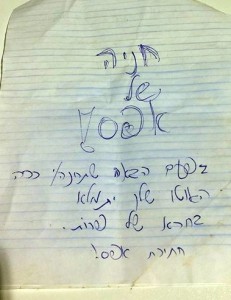 חניה
של
אפס!
בפעם הבאה שתחנה/י ככה
האוטו שלך יתמלא
בחרא של פרות.
חתיכת אפס!